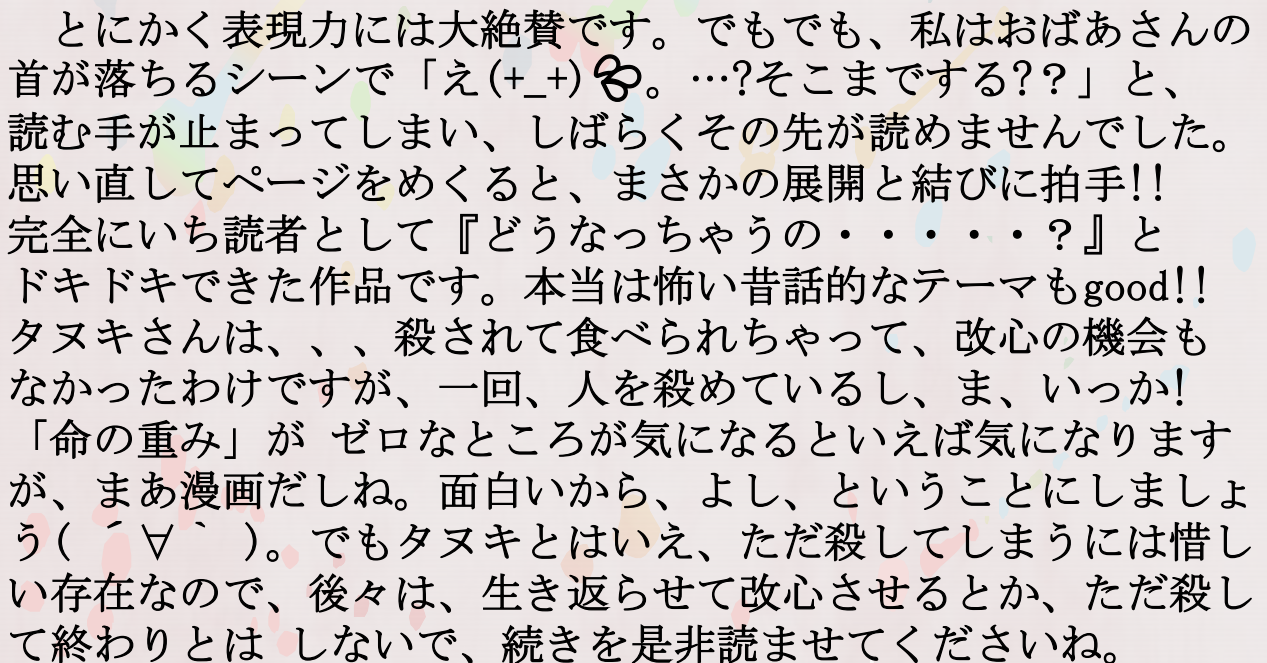 とにかく表現力には大絶賛です。でもでも、私はおばあさんの
首が落ちるシーンで「え(+_+)💦。…?そこまでする?？」と、
読む手が止まってしまい、しばらくその先が読めませんでした。
思い直してページをめくると、まさかの展開と結びに拍手!!
完全にいち読者として『どうなっちゃうの・・・・・？』と
ドキドキできた作品です。本当は怖い昔話的なテーマもgood!!
タヌキさんは、、、殺されて食べられちゃって、改心の機会も
なかったわけですが、一回、人を殺めているし、ま、いっか!
「命の重み」が ゼロなところが気になるといえば気になります
が、まあ漫画だしね。面白いから、よし、ということにしましょ
う( ´∀｀ )。でもタヌキとはいえ、ただ殺してしまうには惜し
い存在なので、後々は、生き返らせて改心させるとか、ただ殺し
て終わりとは しないで、続きを是非読ませてくださいね。